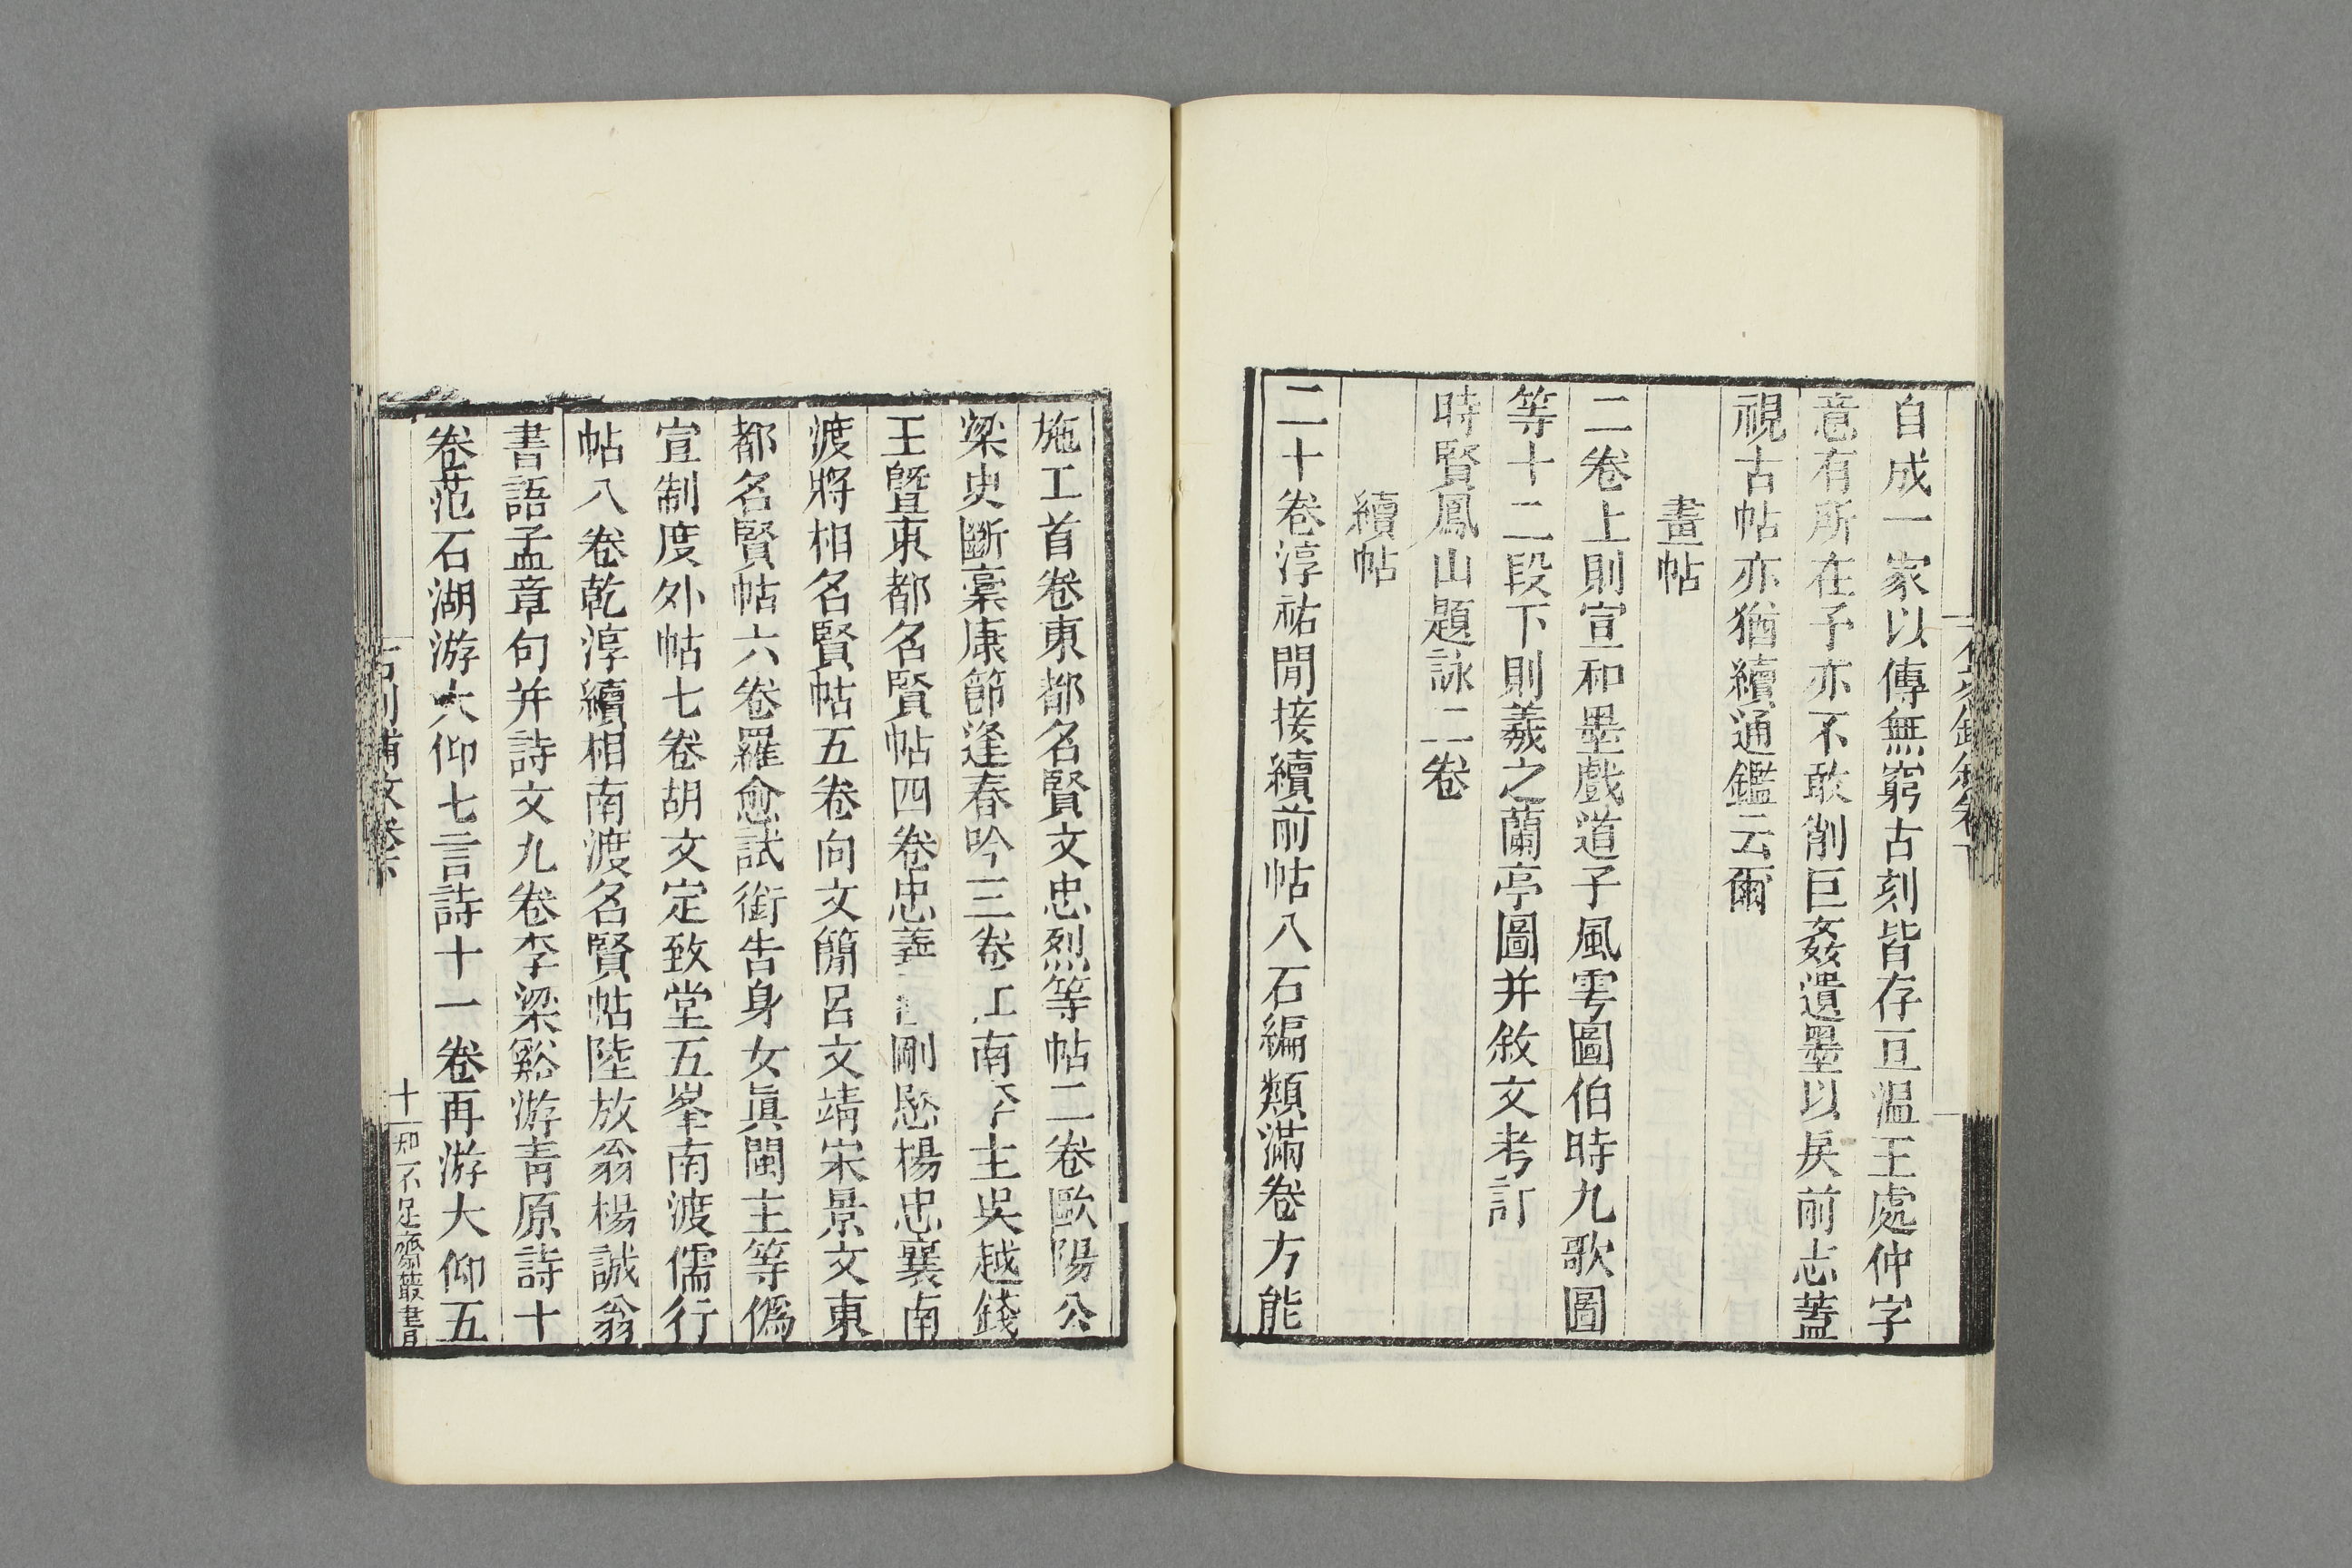 自成一家以傳無窮古刻皆存亘溫王處仲字
意有所在予亦不敢削巨姦遺墨以戾前志蓋
視古帖亦猶續通鑑云爾
畫帖
二卷上則宣和墨戲道子風雩圖伯時九歌圖
等十二段下則羲之蘭亭圖并敘文考訂
時賢鳳山題詠二卷
續帖
二十卷淳祐閒接續前帖八石編類滿卷方能
施工首卷東都名賢文忠烈等帖二卷歐陽公
梁史斷藁康節逢春吟三卷江南李主吳越錢
王曁東都名賢帖四卷忠簡剛愍楊忠襄南
渡將相名賢帖五卷向文簡呂文靖宋景文東
都名賢帖六卷羅愈試銜告身女眞閩主等僞
宣制度外帖七卷胡文定致堂五峯南渡儒行
帖八卷乾淳續相南渡名賢帖陸放翁楊誠翁
書語孟章句并詩文九卷李梁谿游青原詩十
卷范石湖游大仰七言詩十一卷再游大仰五
十一 知不足齋叢書